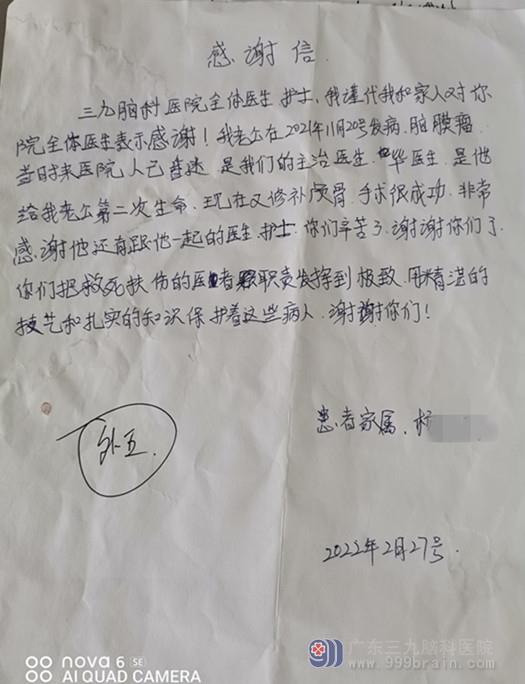 感谢信.
三九脑科医院全体医生护士、我谨代我和家人对你
院全体医生表示感谢！我老公在2021年11月20号发病.脑膜瘤.
当时来医院人已昏迷 是我们的主治医生.华医生.是他
给我老公第二次生命.现在又修补颅骨.手术很成功.非常
感谢他还有跟他一起的医生护士.你们辛苦了.谢谢你们了.
你们把救死扶伤的医者职责发挥到极致.用精湛的
技艺和扎实的知识保护着这些病人.谢谢你们！
外五.
患者家属.杨
2022年2月27号.
nova 6 SE
AI QUAD CAMERA
广东三九脑科医院
www.999brain.com